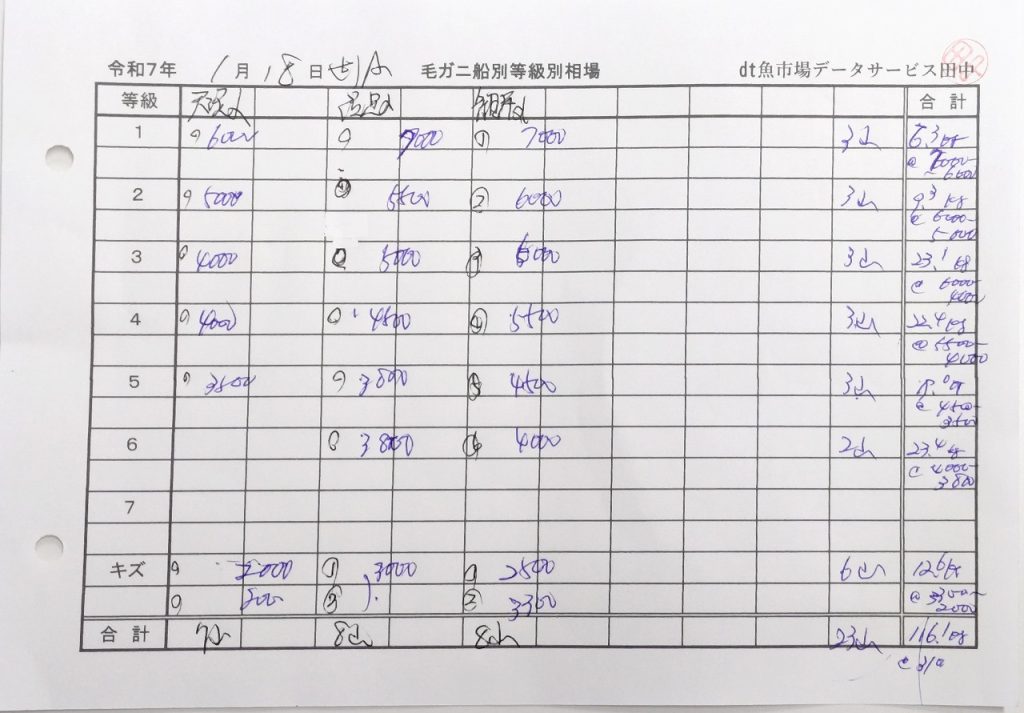 令和7年 1月18日 毛ガニ船別等級別相場 dt魚市場データサービス田中
等級 合計
1 6000 7000 ① 7000 3山 6.3kg
@ 7000-6000
2 5000 ② 5500 ② 6000 3山 9.3kg
@ 6000-5000
3 4000 5000 ③ 6000 3山 23.1kg
@ 6000-4000
4 4000 4500 ④ 5500 3山 22.4kg
@ 5500-4000
5 3500 3800 ⑤ 4500 3山
@ 4500-3500
6 3800 ⑥ 4000 2山 23.4kg
@ 4000-3800
7
キズ 2000 ① 3000 ① 2500 6山 12.6kg
500 ② 3300 @ 3300-2000
合計 7山 8山 8山 23山 116.1kg